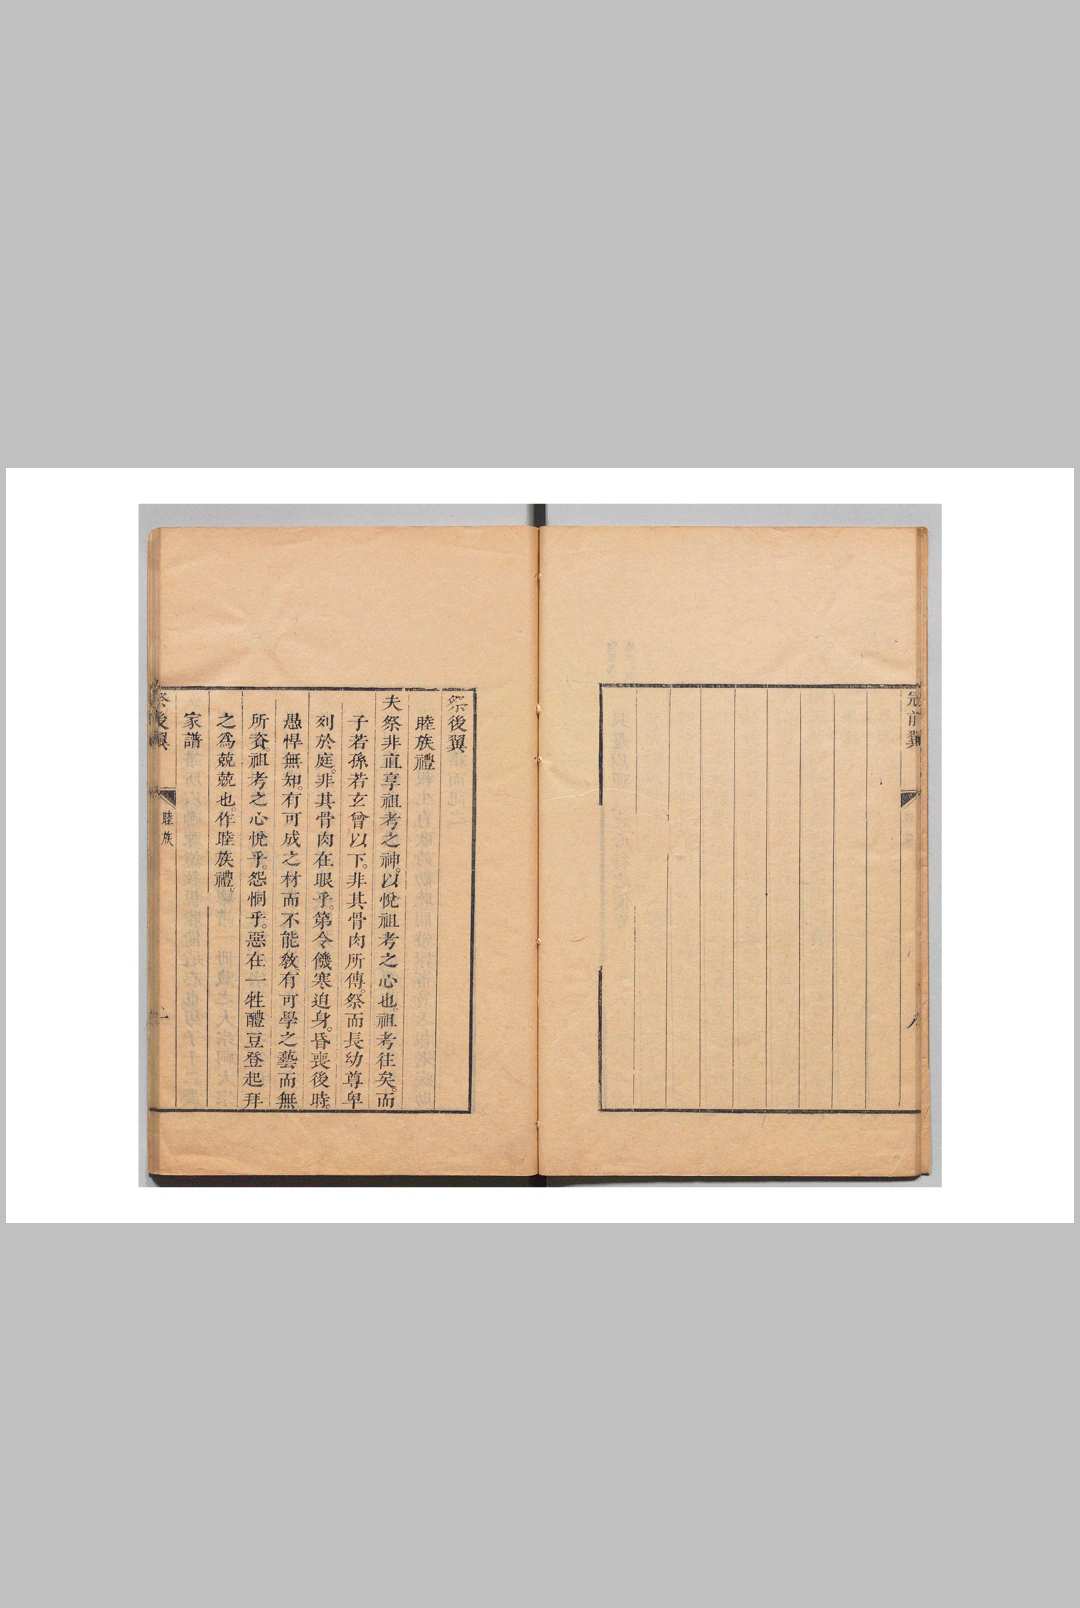 冠前翼
祭後翼
睦族禮
夫祭非直享祖考之神。以悅祖考之心也。祖考往矣。而
子若孫若玄曾以下。非其骨肉所傳。祭而長幼尊卑
列於庭。非其骨肉在眼乎。第令饑寒迫身。昏喪後時。
愚悍無知。有可成之材而不能教。有可學之藝而無
所資。祖考之心悅乎。怨恫乎。惡在一牲醴豆登起拜
之爲兢兢也。作睦族禮。
家譜
祭後翼
睦族
一